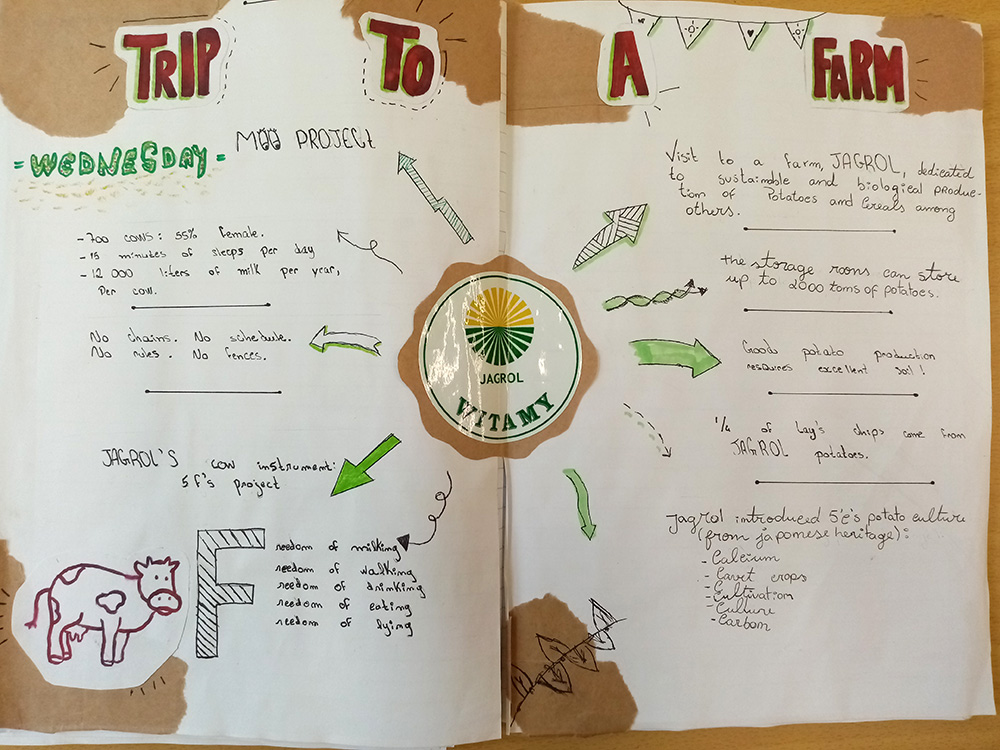 TRIP TO A FARM
= WEDNESDAY =
MOO PROJECT
- 700 cows: 55% female.
- 15 minutes of sleeps per day
- 12 000 liters of milk per year,
per cow.
No chains. No schedule.
No rules. No fences.
JAGROL'S cow instrument:
5 F's project
F
reedom of milking
reedom of walking
reedom of drinking
reedom of eating
reedom of lying
JAGROL
WITAMY
Visit to a farm, JAGROL, dedicated
to sustainable and biological produc-
tion of Potatoes and Cereals among
others.
the storage rooms can store
up to 2000 toms of potatoes.
Good potato production
resqures excellent soil!
1/4 of Lay's chips come from
JAGROL potatoes.
Jagrol introduced 5'c's potato culture
(from japomese heritage):
- Calcium
- Cavet crops
- Cultivation
- Culture
- Carbom